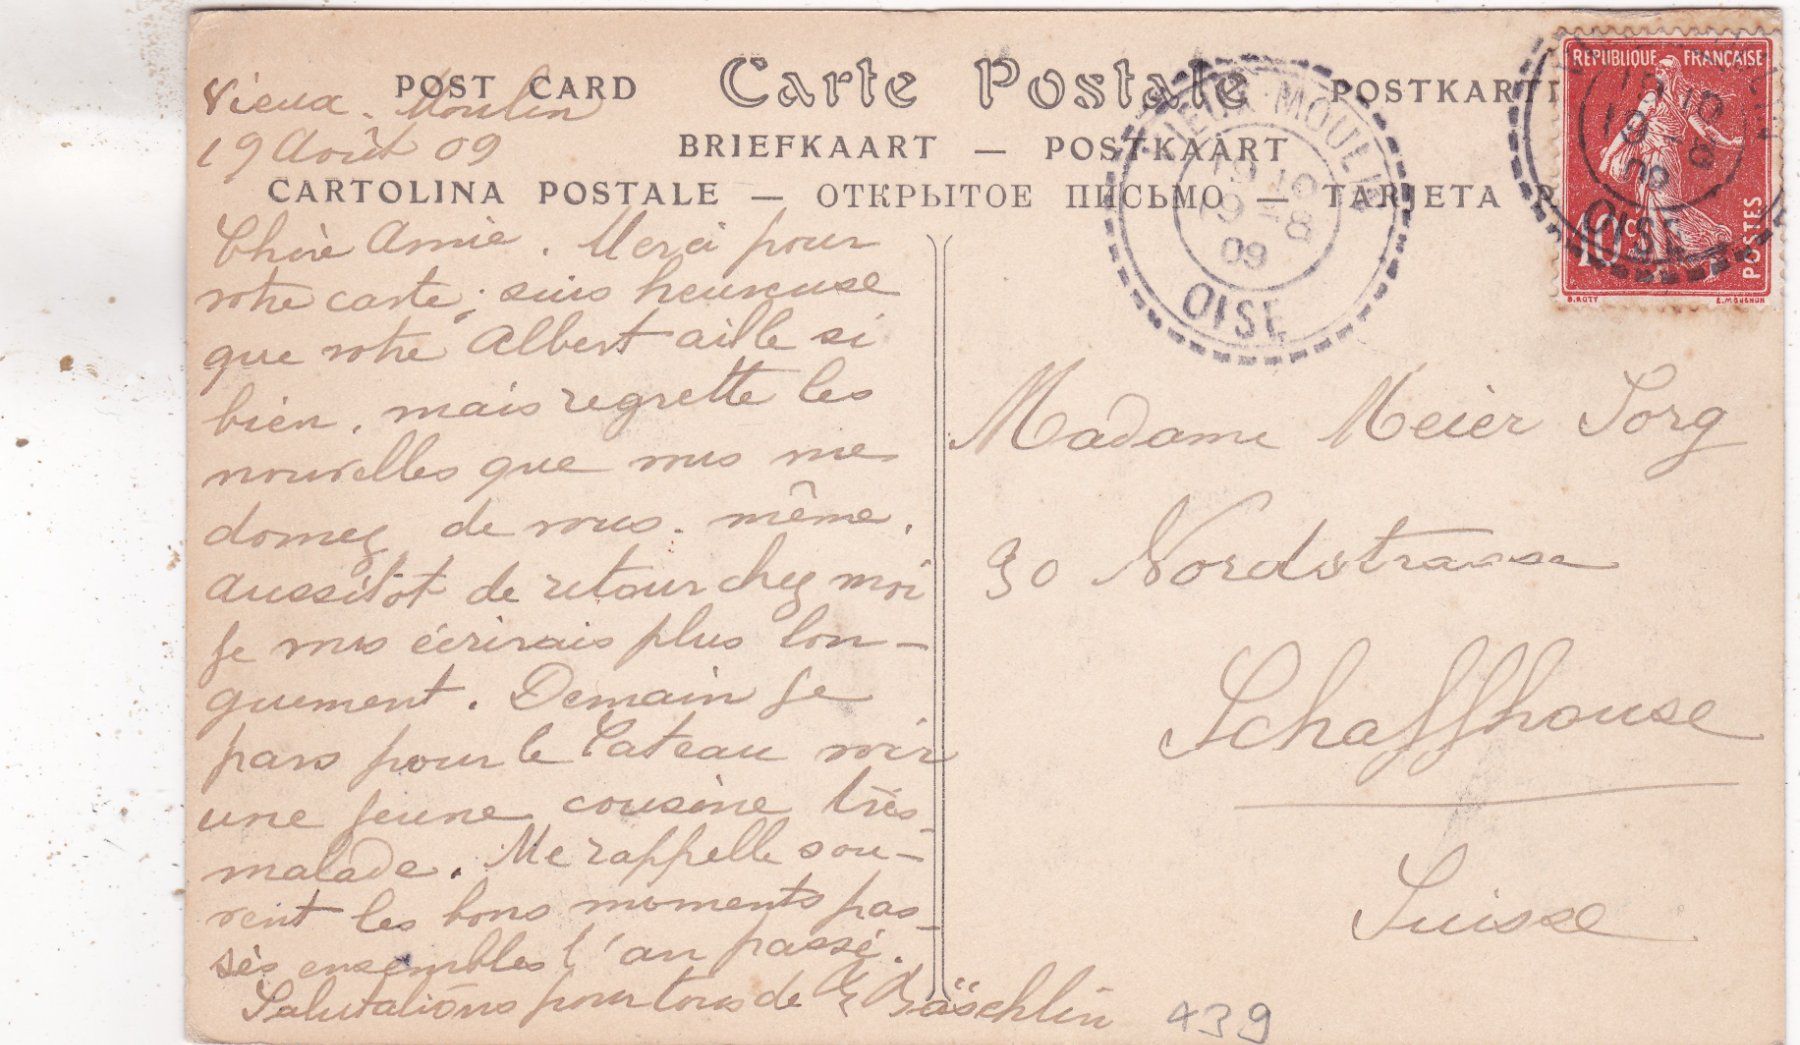 POST CARD Carte Postale POSTKARTE
Vieux-Moulin
19 Août 09
BRIEFKAART — POSTKAART
CARTOLINA POSTALE — ОТКРЫТОЕ ПИСЬМО — TARJETA P
Chère Amie. Merci pour
votre carte; suis heureuse
que votre Albert aille si
bien, mais regrette les
nouvelles que vous me
donnez de vous-même.
aussitôt de retour chez moi
je vous écrirais plus lon-
guement. Demain je
pars pour le Cateau voir
une jeune cousine très
malade. Me rappelle sou-
vent les bons moments pas-
sés ensembles l'an passé.
Salutations pour tous de E Bäschlin
439
VIEUX-MOULIN
19 10
19 -8
09
OISE
REPUBLIQUE FRANÇAISE
10 c
POSTES
O. ROTY
E. MOUCHON
15 10
19 -8
09
OISE
Madame Meier Sorg
30 Nordstrasse
Schaffhouse
Suisse